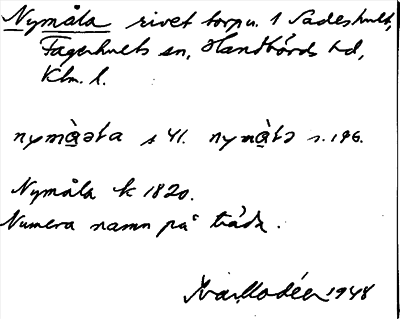 Nymåla rivet torp u. 1 Sadeshult,
Fagerhults sn, Handbörds hd,
Klm. l.
nymà̱əta s 41. nymà̱tə s. 196.
Nymåla k 1820.
Numera namn på träda.
Ivar Modéer 1948